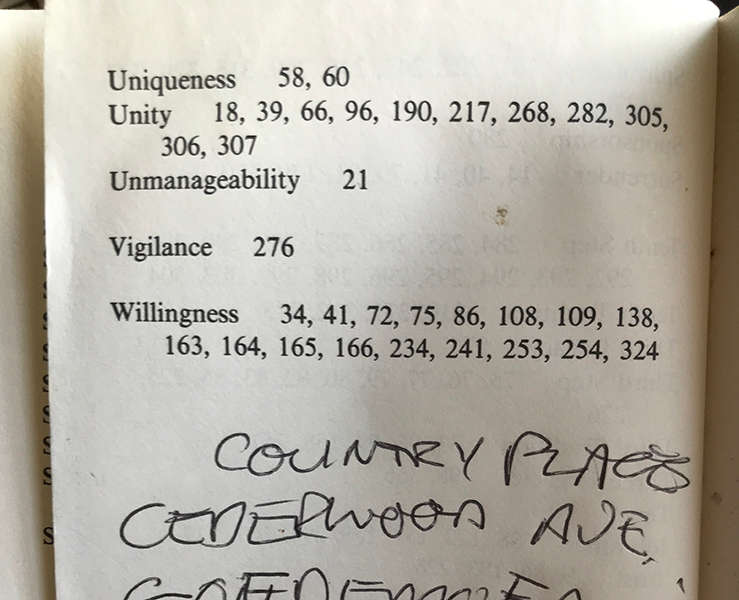 Uniqueness 58, 60
Unity 18, 39, 66, 96, 190, 217, 268, 282, 305,
306, 307
Unmanageability 21
Vigilance 276
Willingness 34, 41, 72, 75, 86, 108, 109, 138,
163, 164, 165, 166, 234, 241, 253, 254, 324
COUNTRY
CEDERWOOD AVE.